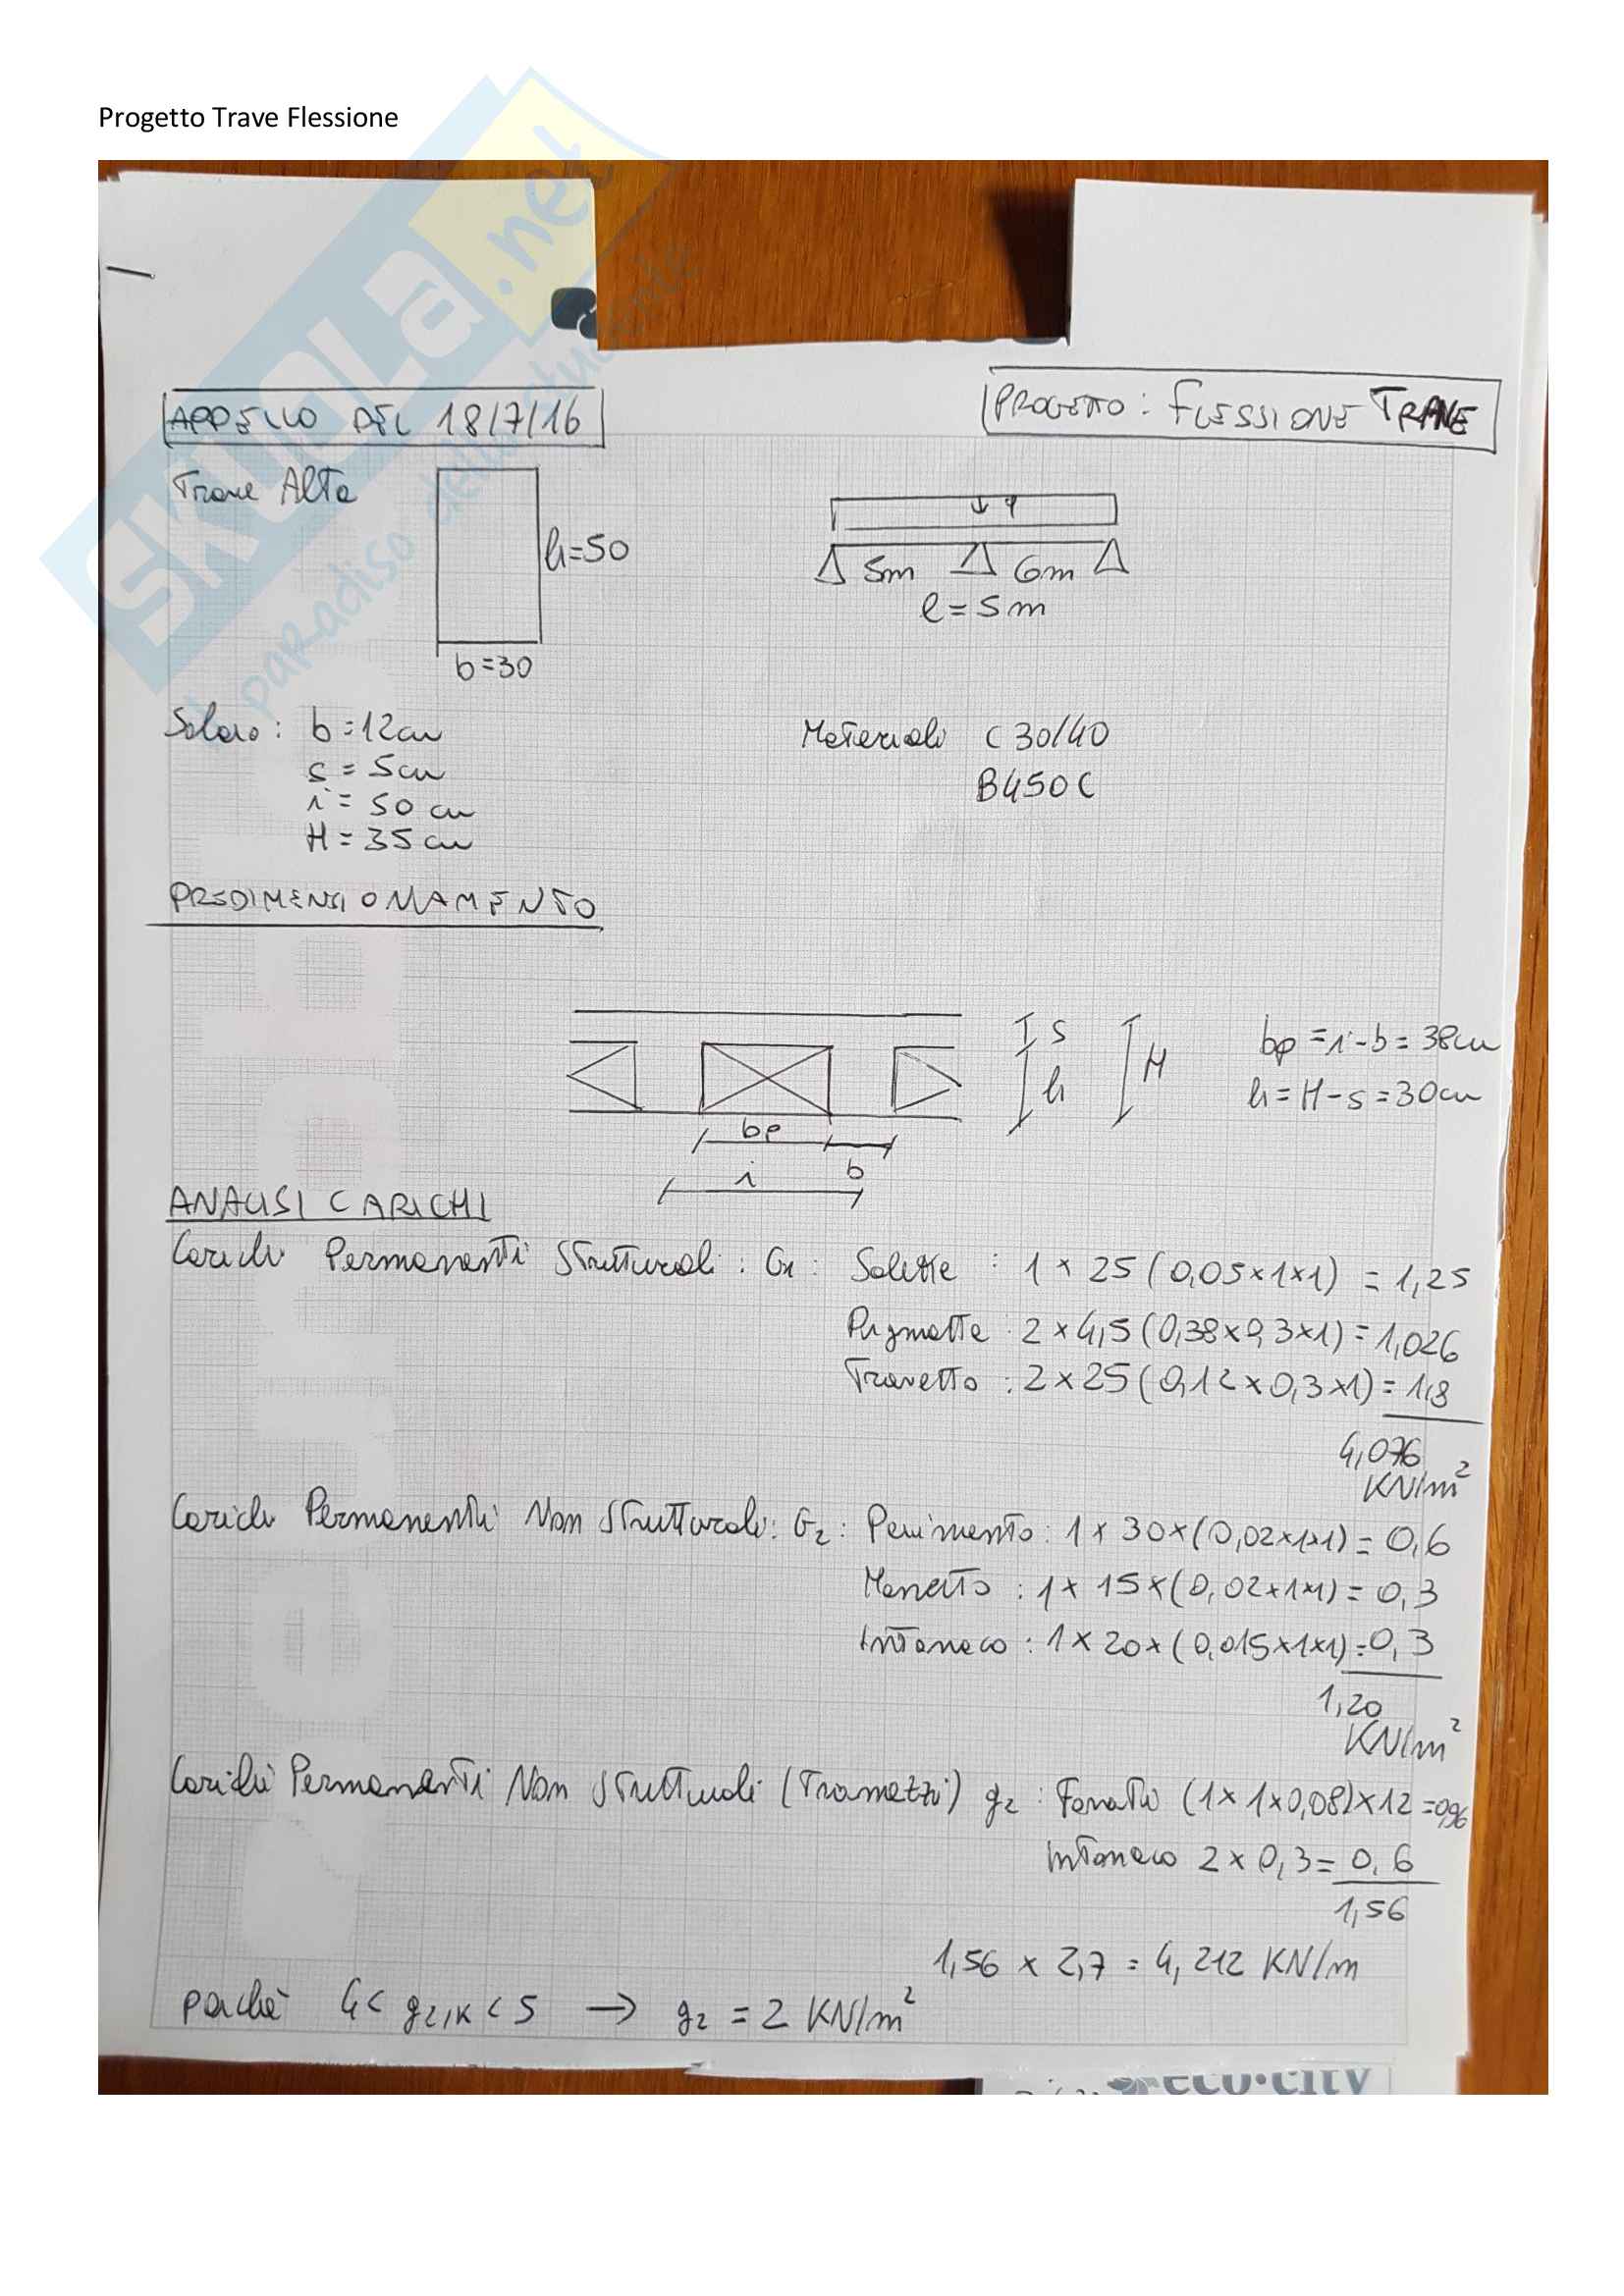 Progetto Trave Flessione
SKUOLA.net
il paradiso dello studente
APPELLO DEL 18/7/16
PROGETTO: FLESSIONE TRAVE
Trave Alta
h=50
b=30
q
5m 6m
l=5m
Solaio: b=12cm
s=5cm
i=50cm
H=35cm
Materiali C30/40
B450C
PREDIMENSIONAMENTO
s
h
H
bp=i-b=38cm
h=H-s=30cm
bp
b
i
ANALISI CARICHI
Carichi Permanenti Strutturali: G1: Soletta: 1×25(0,05×1×1)=1,25
Pignatte: 2×4,5(0,38×0,3×1)=1,026
Travetto: 2×25(0,12×0,3×1)=1,8
4,076
KN/m²
Carichi Permanenti Non Strutturali: G2: Pavimento: 1×30×(0,02×1×1)=0,6
Massetto: 1×15×(0,02×1×1)=0,3
Intonaco: 1×20×(0,015×1×1)=0,3
1,20
KN/m²
Carichi Permanenti Non Strutturali (Tramezzi) g2: Forati (1×1×0,08)×12=0,96
Intonaco 2×0,3=0,6
1,56
1,56×2,7=4,212 KN/m
perché 4<g2,k<5 → g2=2 KN/m²
eco·city